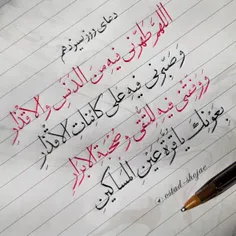 دعای روز سیزدهم
اللهم طَهِّرنی فیهِ مِنَ الدَنَسِ وَالاَقذارِ
وَصَبِّرنی فیهِ عَلی کائِناتِ الاَقدارِ
وَوَفِّقنی فیهِ لِلتُّقی وَصُحبَةِ الاَبرارِ
بِعَونِکَ یا قُرَّةَ عَینِ المَساکینِ
ostad-shojae